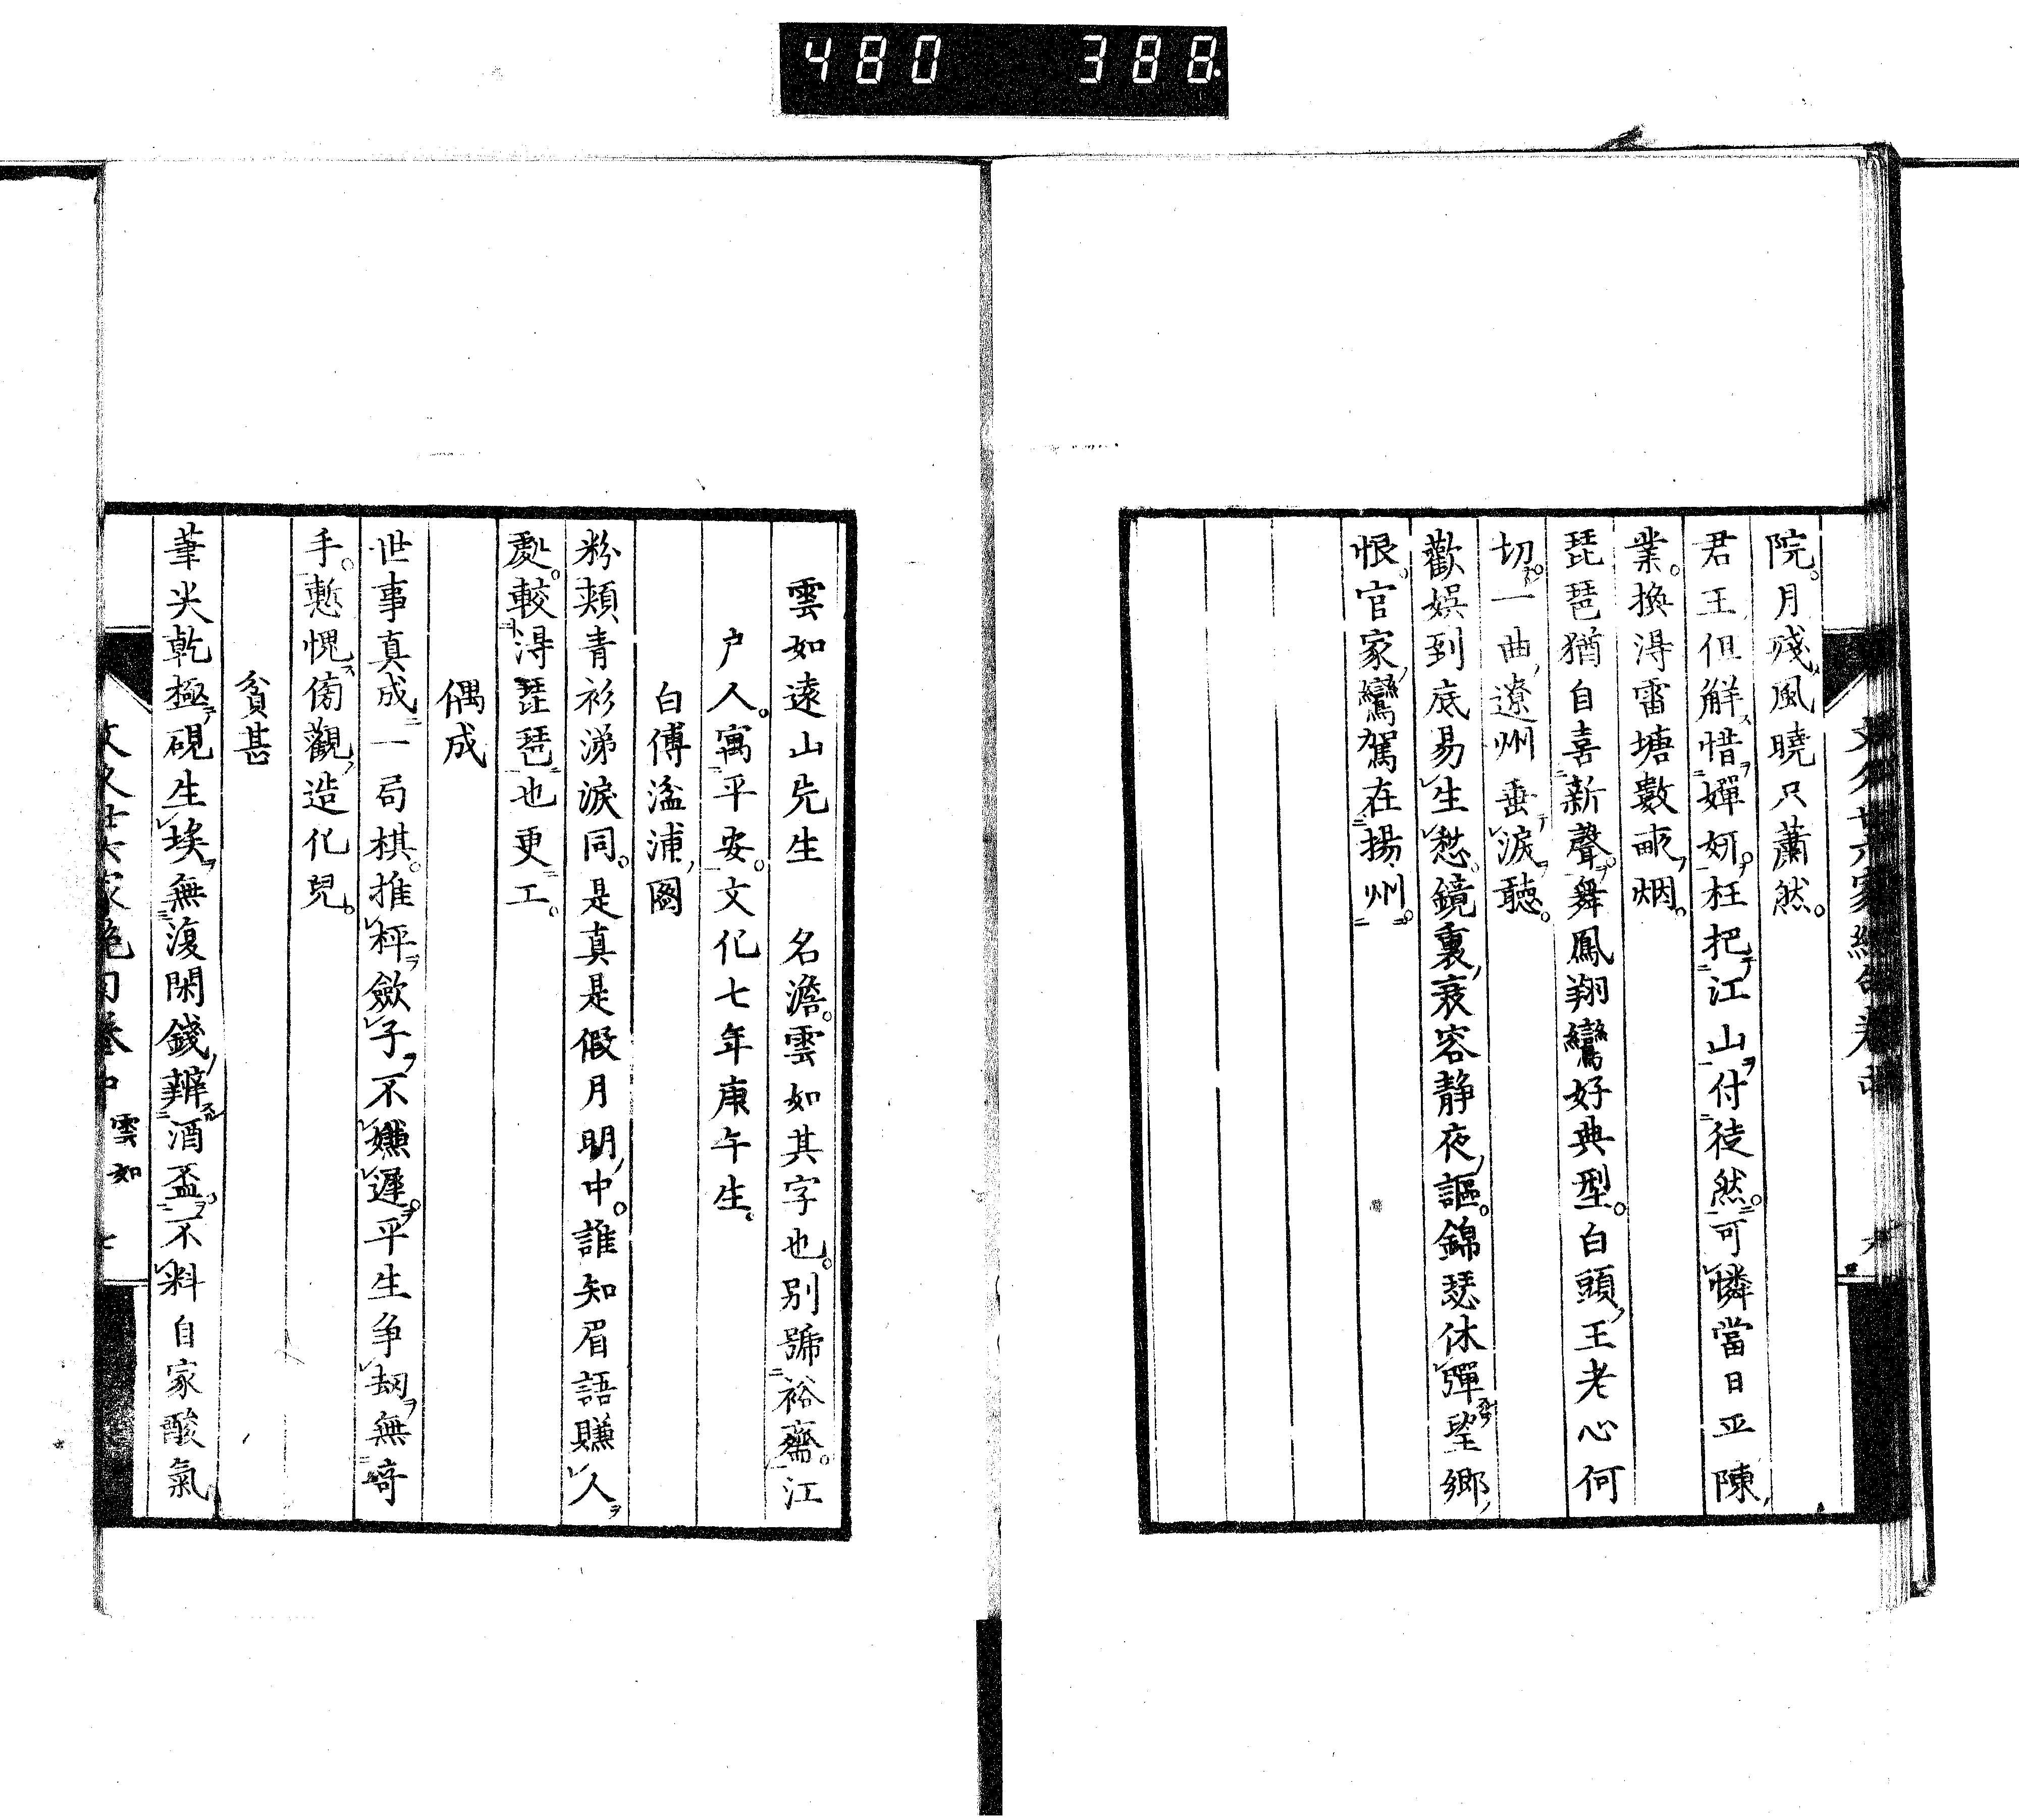 480 388.
院。月殘風曉只蕭然。
君王但解惜嬋妍。枉把江山付徒然。可憐當日平陳
業。換得雷塘數畝烟。
琵琶猶自喜新聲。舞鳳翔鸞好典型。白頭王老心何
切。一曲遼州垂淚聽。
歡娯到底易生愁。鏡裏衰容静夜謳。錦瑟休彈望鄉
恨。官家鸞駕在揚州。
雲如遠山先生 名澹。雲如其字也。别號裕齋。江
户人。寓平安。文化七年庚午生。
白傅湓浦圖
粉頬青衫涕淚同。是真是假月明中。誰知眉語賺人
處。較得琵琶也更工。
偶成
世事真成一局棋。推枰斂子不嫌遲。平生争刼無奇
手。慙愧傍觀造化兒。
貧甚
筆尖乾極硯生埃。無復閑錢辨酒盃。不料自家酸氣
雲如